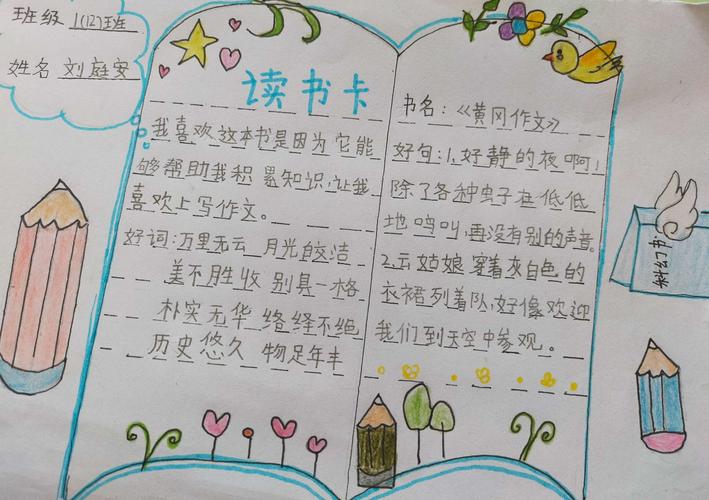 班级 1(12)班
姓名 刘庭安
读书卡
我喜欢这本书是因为它能
够帮助我积累知识,让我
喜欢上写作文。
好词:万里无云 月光皎洁
美不胜收 别具一格
朴实无华 络绎不绝
历史悠久 物足年丰
书名:《黄冈作文》
好句:1.好静的夜啊!
除了各种虫子在低低
地鸣叫,再没有别的声音。
2.云姑娘穿着灰白色的
衣裙列着队,好像欢迎
我们到天空中参观。
科幻书